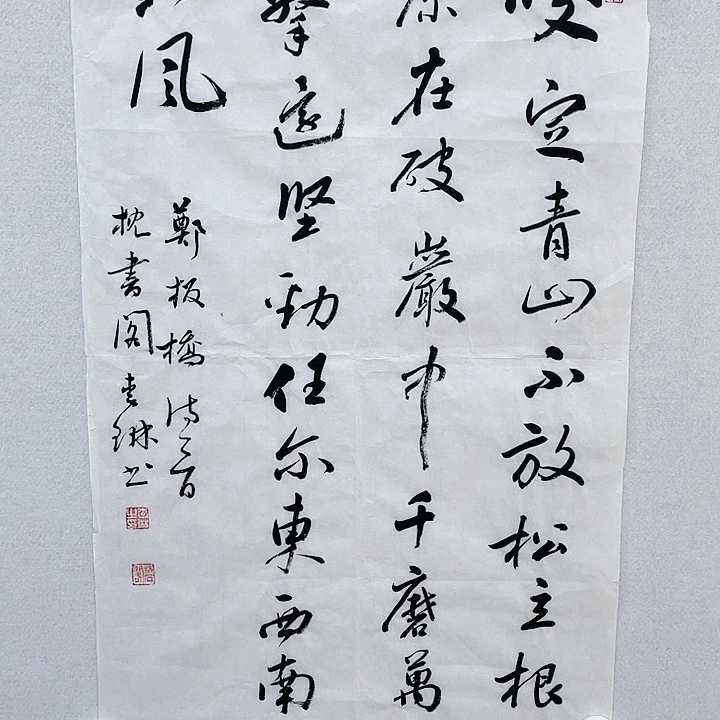 咬定青山不放松立根
原在破巖中千磨萬
擊還坚勁任尔東西南
北風
鄭板橋诗
枕書閣 琳书